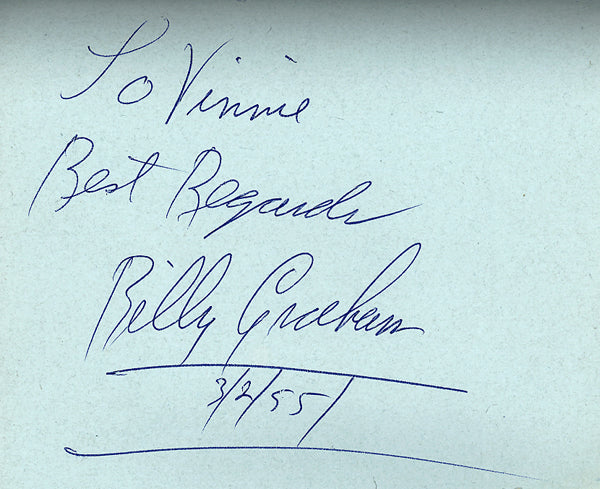 To Vinnie
Best Regards
Billy Graham
3/2/55